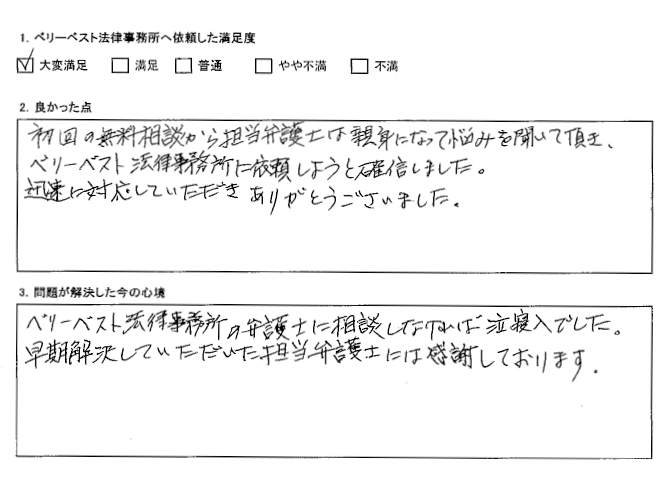 1. ベリーベスト法律事務所へ依頼した満足度
☑ 大変満足 □ 満足 □ 普通 □ やや不満 □ 不満
2. 良かった点
初回の無料相談から担当弁護士は親身になって悩みを聞いて頂き、
ベリーベスト法律事務所に依頼しようと確信しました。
迅速に対応していただきありがとうございました。
3. 問題が解決した今の心境
ベリーベスト法律事務所の弁護士に相談しなければ泣寝入でした。
早期解決していただいた担当弁護士には感謝しております。